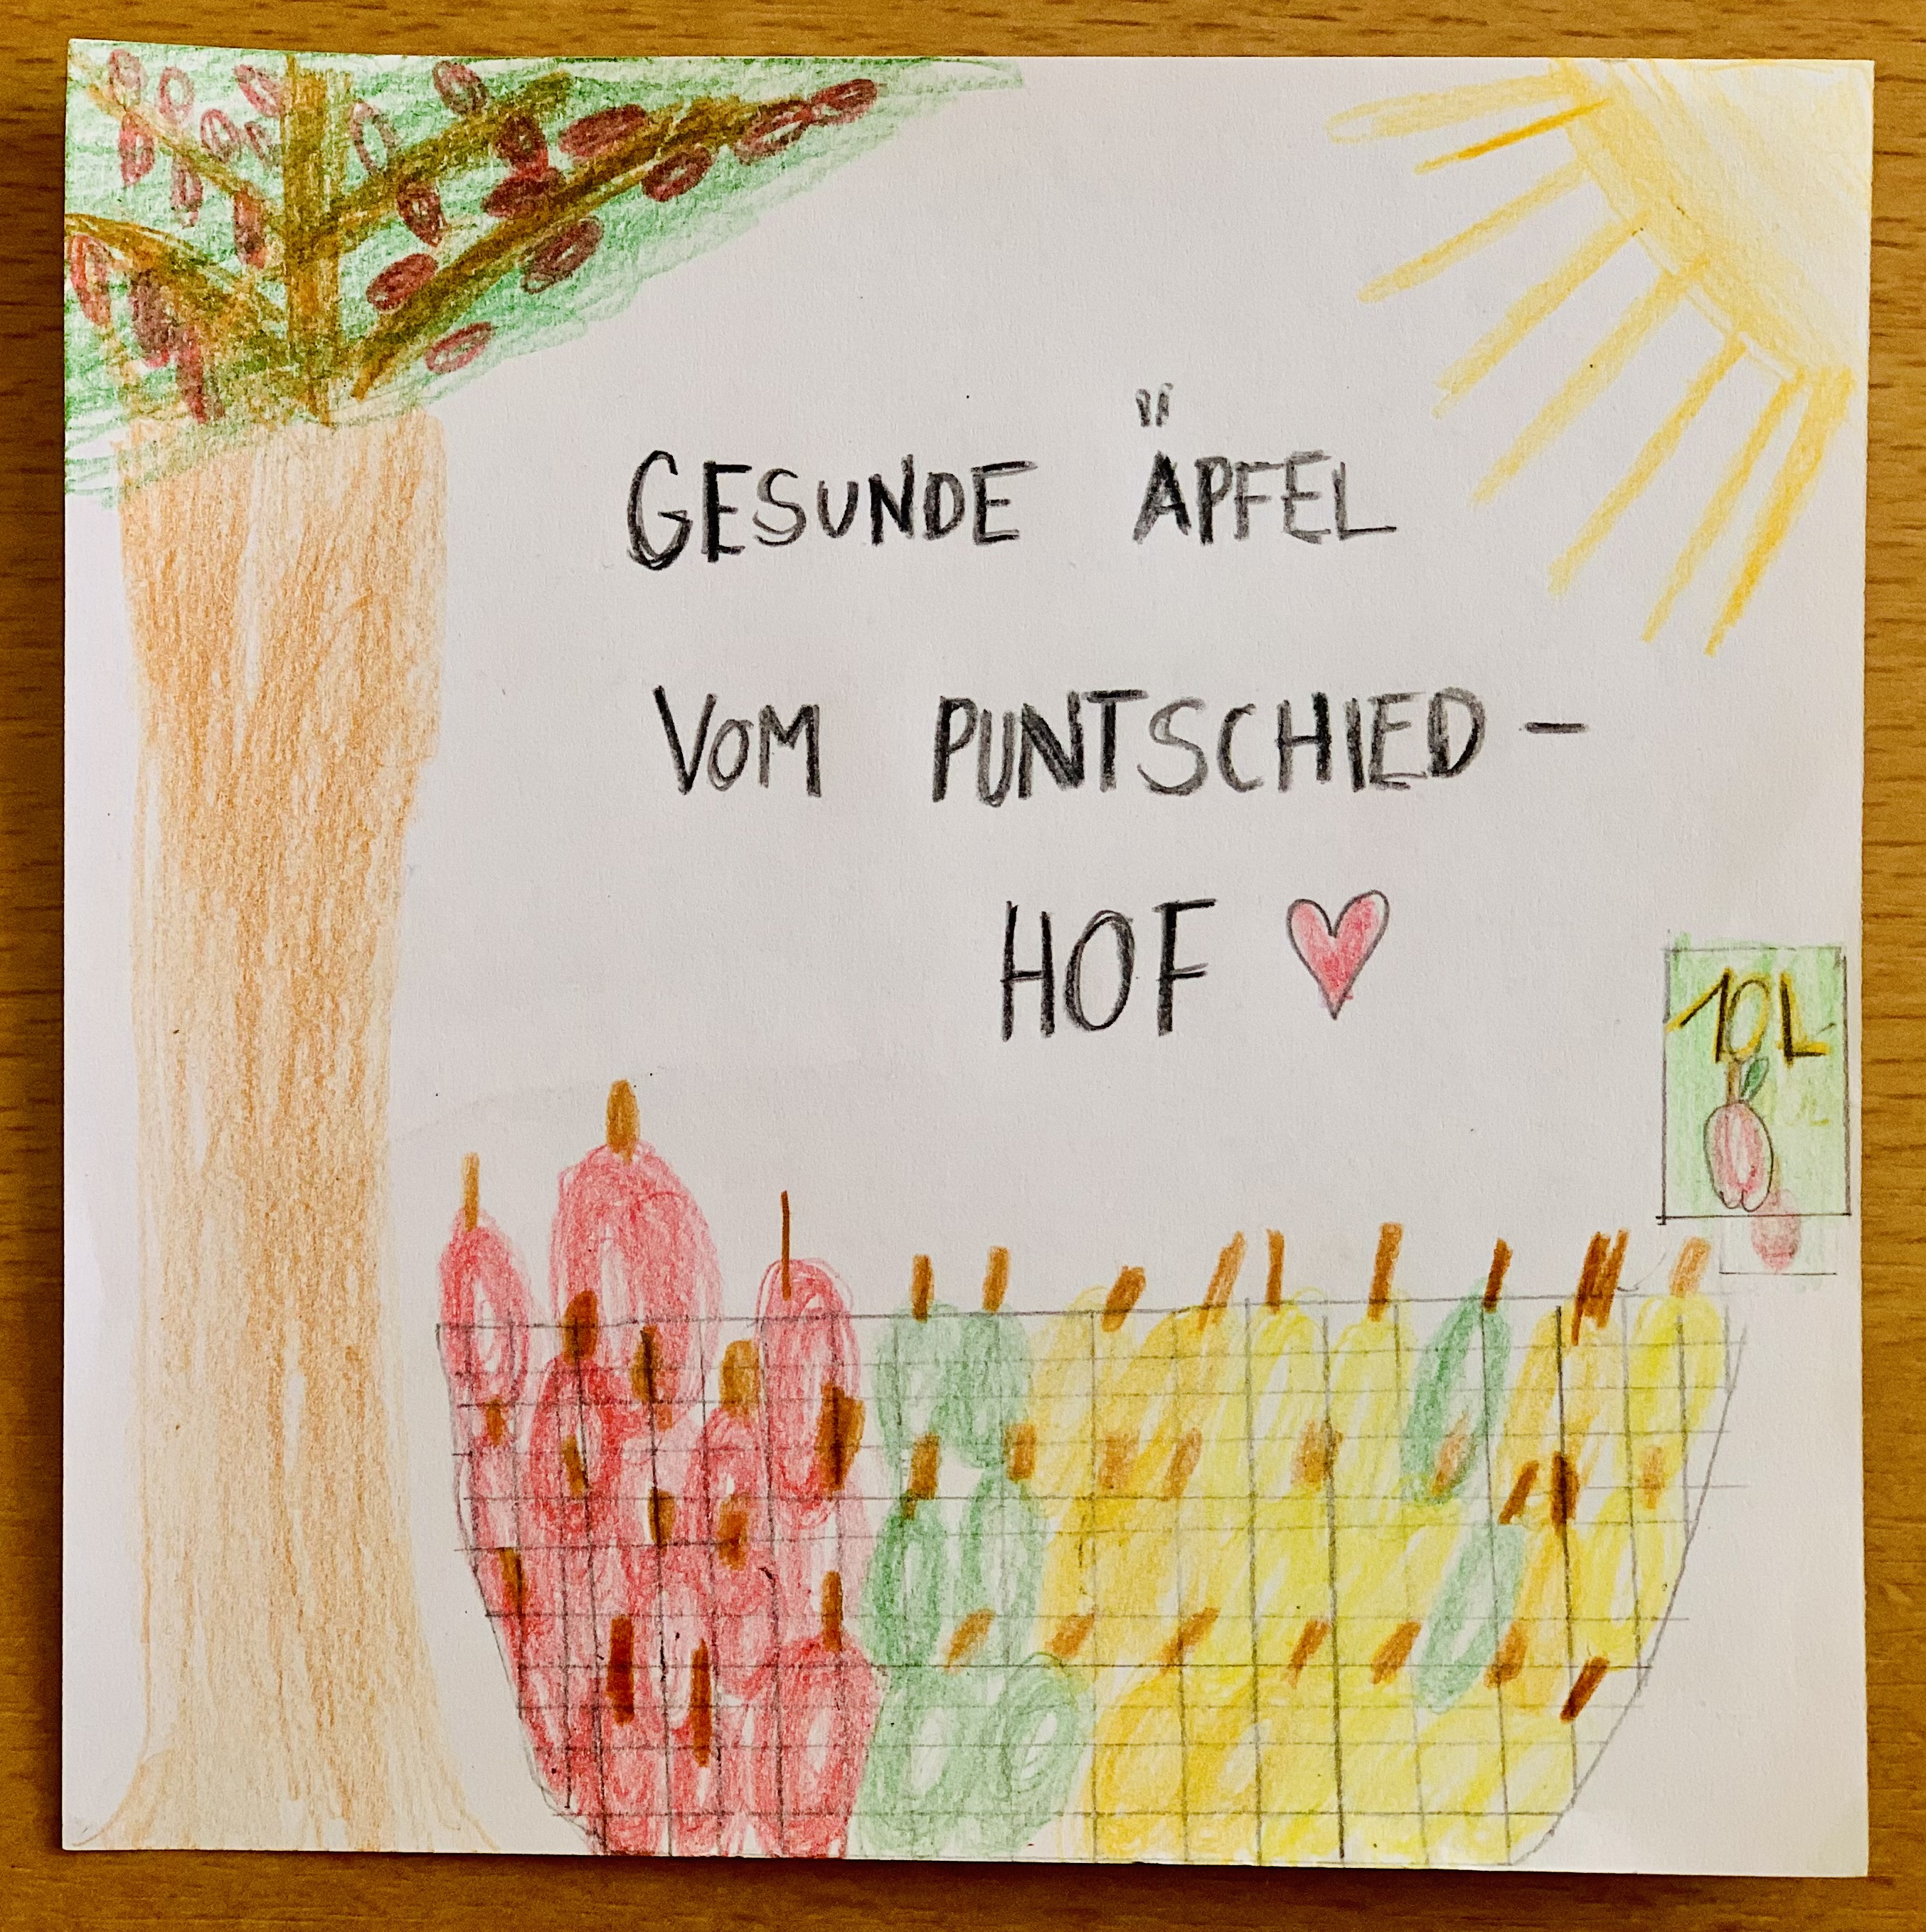 GESUNDE ÄPFEL
VOM PUNTSCHIED-
HOF
10L